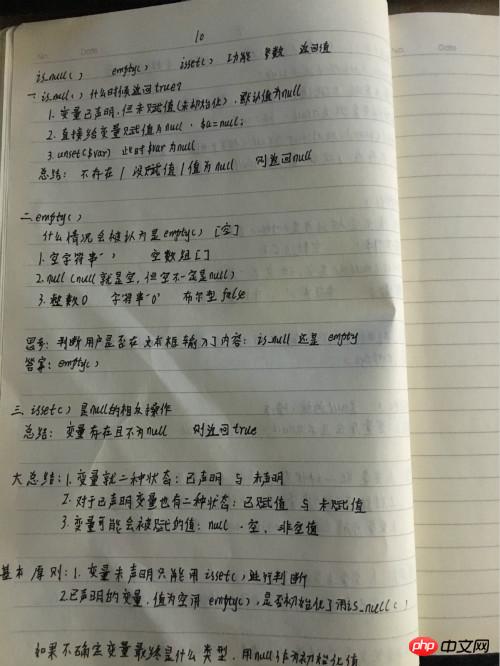 No. Date
No. Date
10
is_null() empty() isset() 功能 参数 返回值
一. is_null() 什么时候返回true?
1. 变量已声明, 但未赋值(未初始化), 默认值为null
2. 直接给变量赋值为null . $a=null;
3. unset($var) 此时$var为null
总结: 不存在 / 没赋值 / 值为null 则返回null
二. empty()
什么情况会被认为是empty() [空]
1. 空字符串'' 空数组[]
2. null (null就是空, 但空不一定是null)
3. 整数0 字符串'0' 布尔型false
思考: 判断用户是否在文本框输入了内容: is_null 还是 empty
答案: empty()
三. isset() 是null的相反操作
总结: 变量存在且不为null 则返回true
大总结: 1. 变量就二种状态: 已声明 与 未声明
2. 对于已声明变量也有二种状态: 已赋值 与 未赋值
3. 变量可能会被赋的值: null . 空 . 非空值
基本原则: 1. 变量未声明只能用isset()进行判断
2. 已声明的变量, 值为空用empty(), 是否初始化了用is_null()
如果不确定变量最终是什么类型, 用null作为初始化值
php 中文网